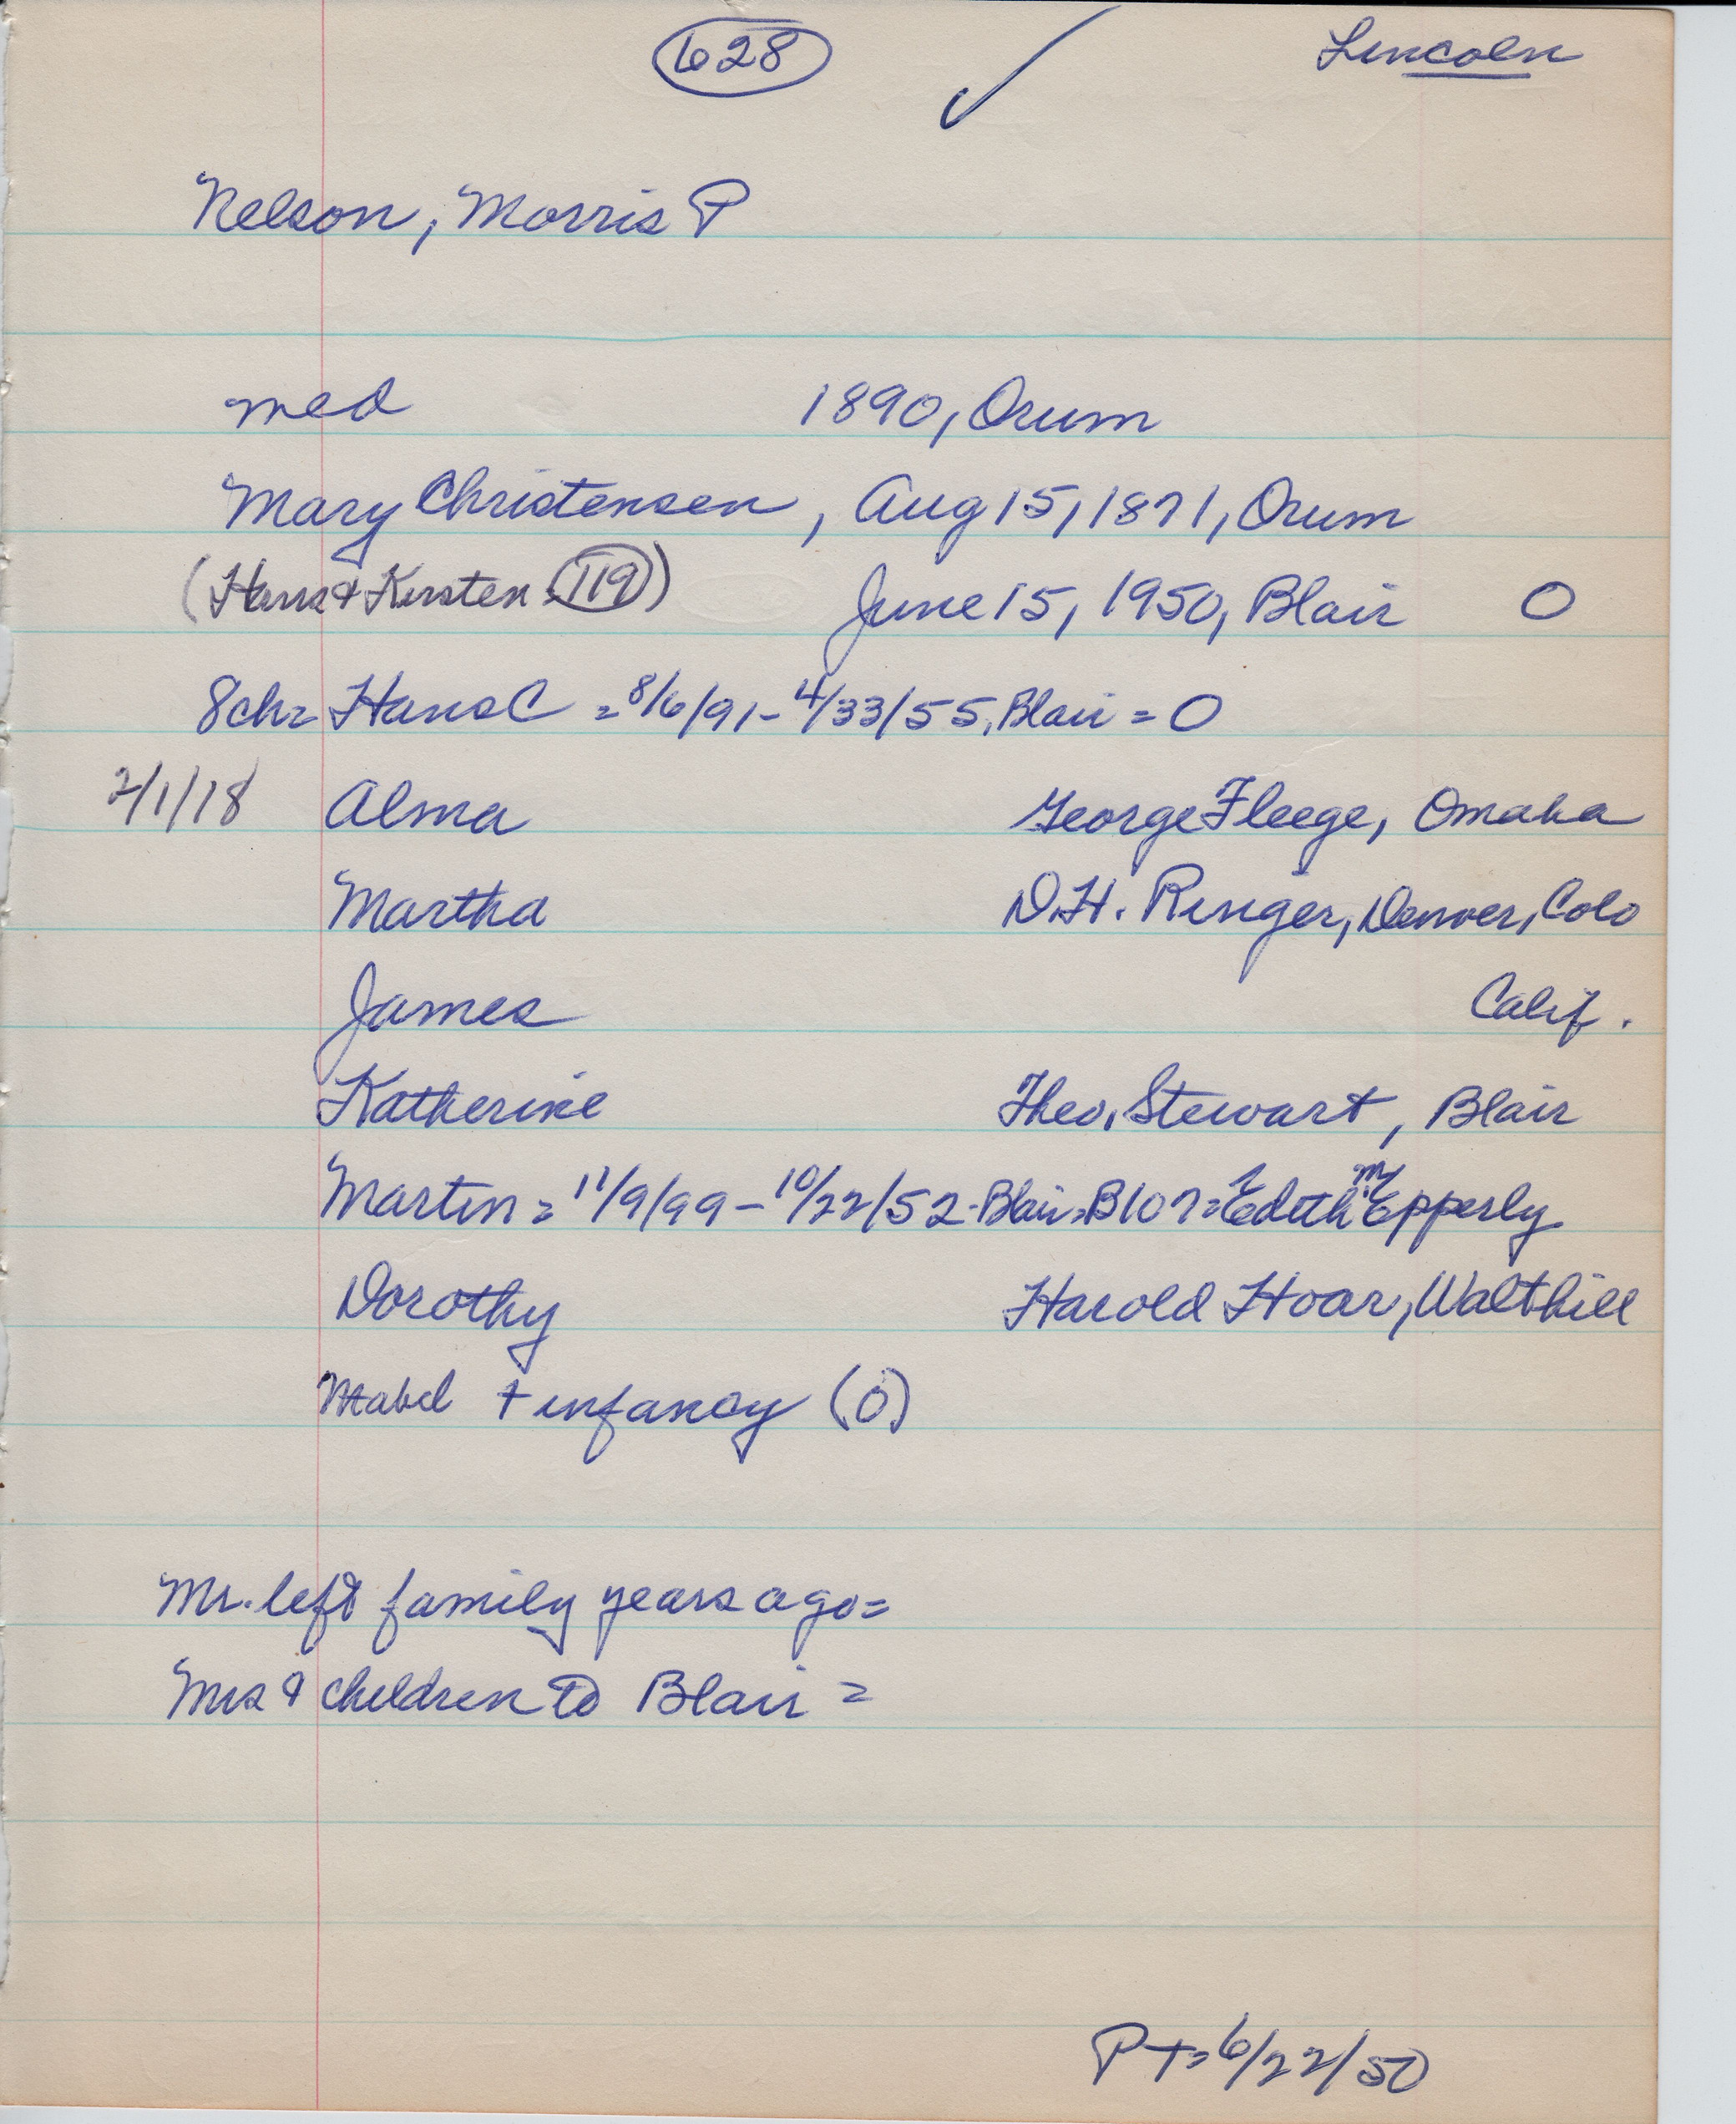 628 ✓ Lincoln
Nelson, Morris P
med 1890, Orum
Mary Christensen, Aug 15, 1871, Orum
(Hans & Kirsten 119) June 15, 1950, Blair O
8chr Hans C = 8/6/91 - 4/33/55, Blair = O
2/1/18 Alma George Fleege, Omaha
Martha D.H. Ringer, Denver, Colo
James Calif.
Katherine Theo. Stewart, Blair
Martin = 11/9/99 - 10/22/52 - Blair = B107 = Edith M Epperly
Dorothy Harold Hoar, Walthill
Mabel + infancy (O)
Mr. left family years ago =
Mrs & children to Blair =
PT = 6/22/50